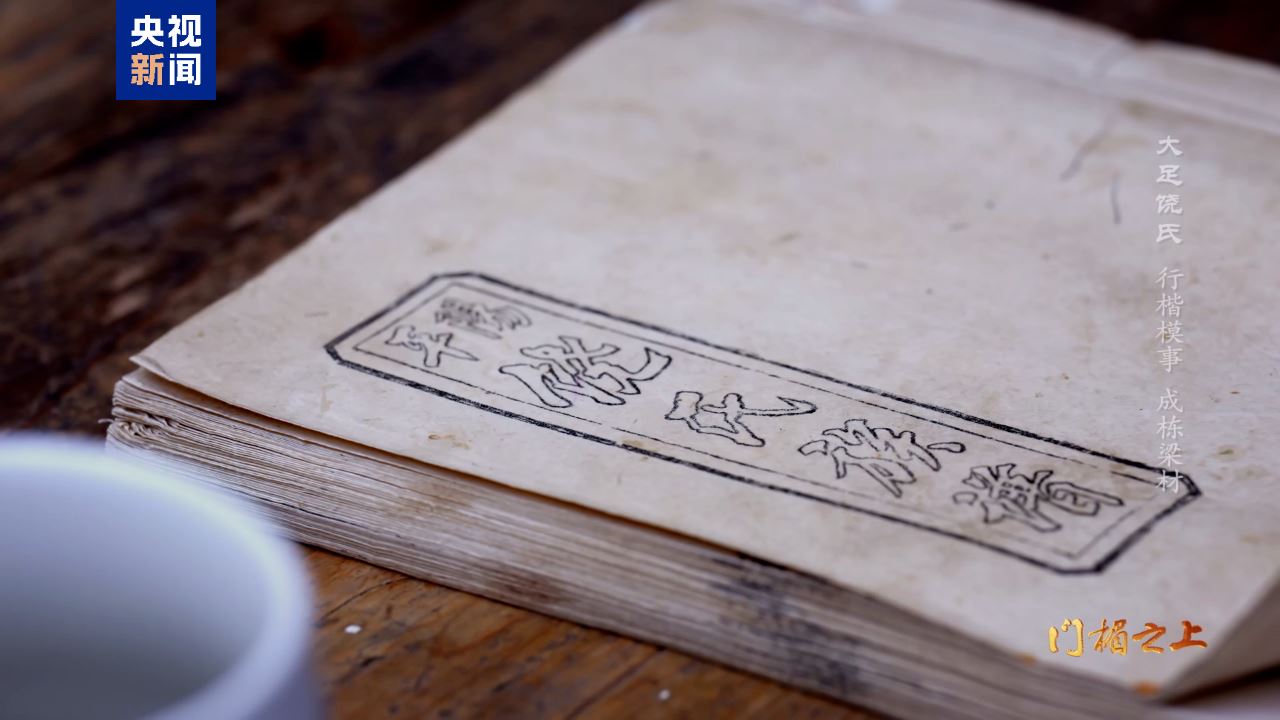 央视
新闻
平陽
饒氏族譜
大足饶氏 行楷模事 成栋梁材
门楣之上